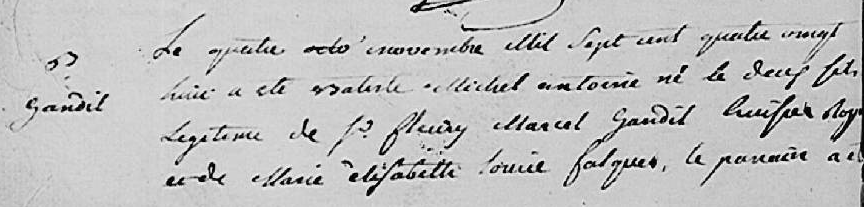 B
Gandil
Le quatre novembre Mil Sept cent quatre vingt
huit a ete Batisé Michel antoine né le deux fils
Legitime de Sr. fleury Marcel Gandil huissier Roya
et de Marie elisabette Louise falques, le parrain a é